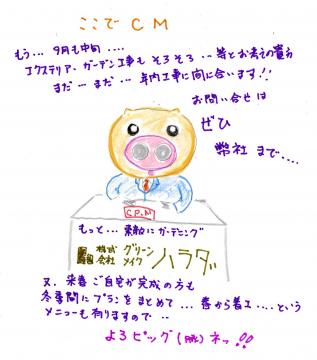 ここで CM
もう… 9月も中旬 ‥‥
エクステリア、ガーデン工事も そろそろ … 等とお考えの貴方
まだ … まだ … 年内工事に間に合います!!
お問い合せは
ぜひ
弊社 まで‥‥
C.P.
もっと… 素敵にガーデニング
株式会社 グリーンメイク ハラダ
又、来春 ご自宅が完成の方も
冬季間にプランをまとめて … 春から着工 ‥‥という
メニューも有りますので ‥
よろピッグ( )ネッ!!